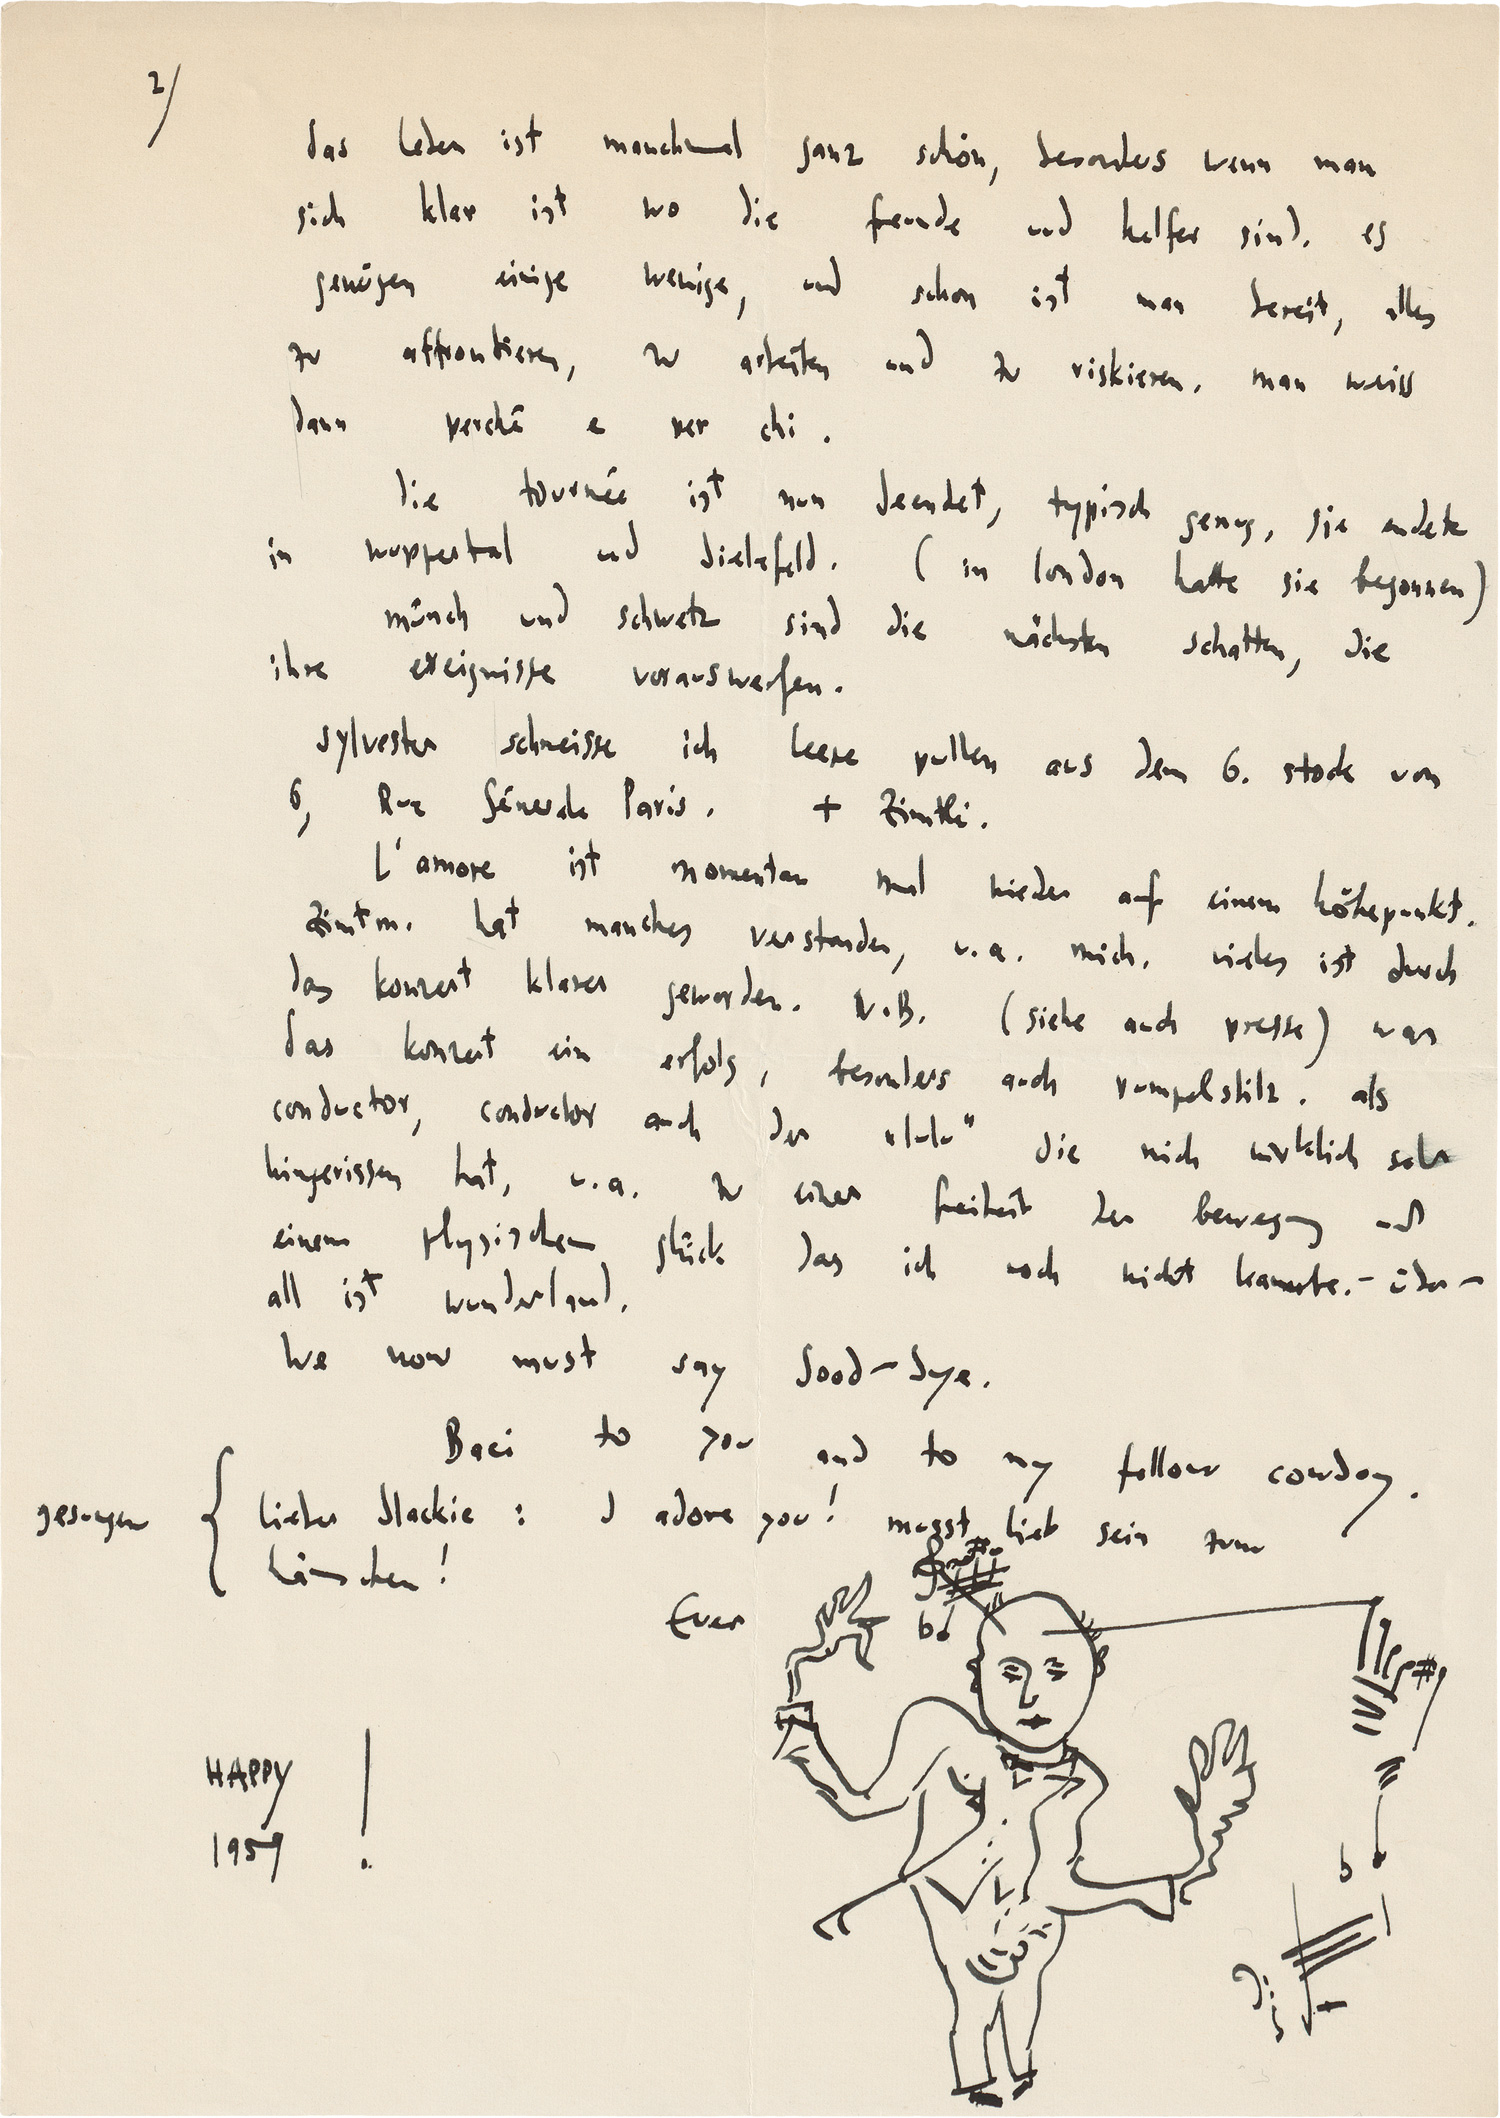 2/
das leben ist manchmal ganz schön, besonders wenn man
sich klar ist wo die freunde und helfer sind. es
genügen einige wenige, und schon ist man bereit, alles
zu affrontieren, zu arbeiten und zu riskieren. man weiss
dann perchè e per chi.
die tournée ist nun beendet, typisch genug, sie endete
in wuppertal und bielefeld. (in london hatte sie begonnen)
münch und schwetz sind die nächsten schatten, die
ihre ereignisse vorauswerfen.
sylvester schmeisse ich leere pullen aus dem 6. stock von
6, Rue Paris. +
L'amore ist momentan mal wieder auf einem höhepunkt.
hat manches verstanden, u.a. mich. vieles ist durch
das konzert klarer geworden. N.B. (siehe auch presse) war
das konzert ein erfolg, besonders auch rumpelstilz. als
conductor, conductor auch der "lulu" die mich wirklich sehr
hingerissen hat, u.a. zu einer freiheit der bewegung und
einem physischen glück das ich noch nicht kannte.- über-
all ist wunderland.
We now must say Good-bye.
Baci to you and to my fellow cowboy.
gesungen { lieber blackie: I adore you! musst lieb sein zum
hänschen!
Ever
HAPPY !
1959